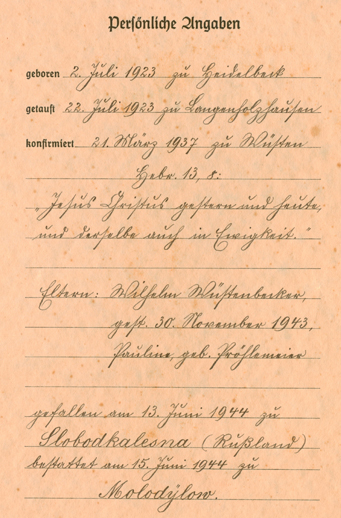 Persönliche Angaben
geboren 2. Juli 1923 zu Heidelbeck
getauft 22. Juli 1923 zu Langenholzhausen
konfirmiert 21. März 1937 zu Wüsten
Hebr. 13, 8:
"Jesus Christus gestern und heute,
und derselbe auch in Ewigkeit."
Eltern: Wilhelm Wüstenbecker,
gest. 30. November 1943,
Pauline, geb. Prößlemeier
gefallen am 13. Juni 1944 zu
Slobodkalesna (Rußland)
bestattet am 15. Juni 1944 zu
Molodylow.